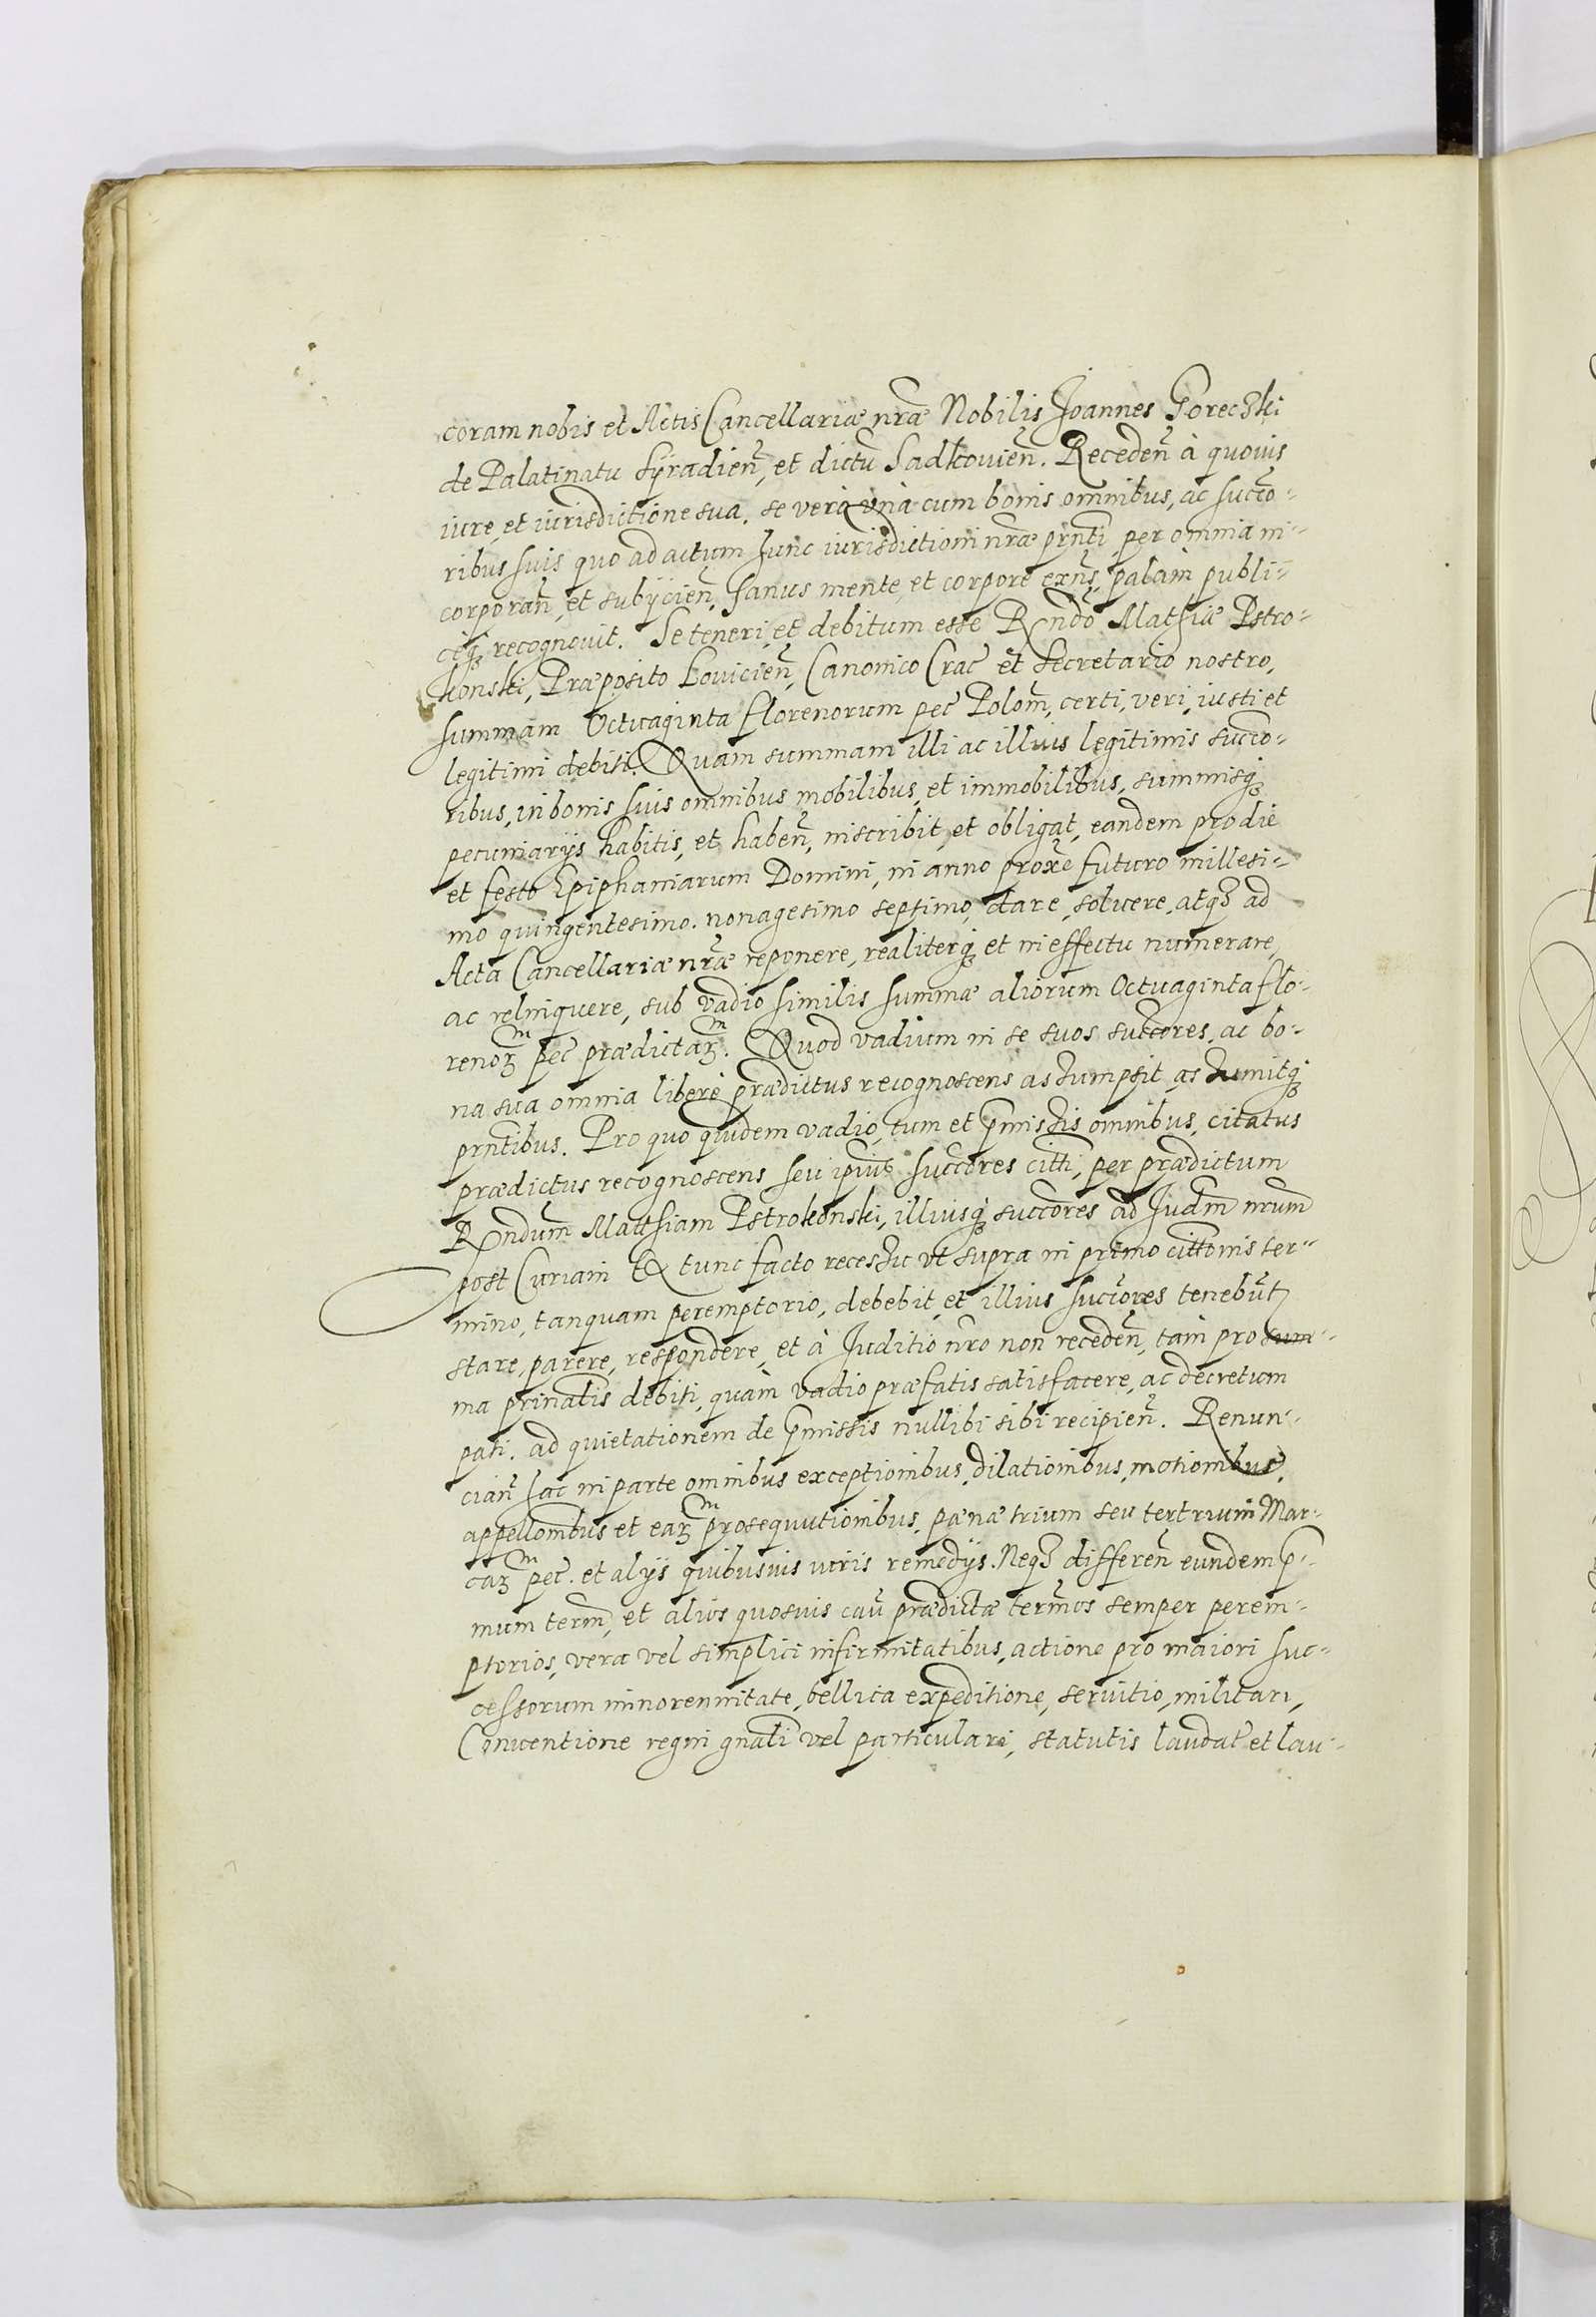 coram nobis et Actis Cancellariæ nr̃æ Nobilis Joannes Goreczki
de Palatinatu Syradien̄, et dictu Sadkouien̄. Receden̄ à quouis
iure, et iurisdictione sua, se verò vnà cum bonis omnibus, ac succo-
ribus suis quo ad actum hunc iurisdictioni nr̃æ prn̄ti per omnia in-
corporan̄, et subijcien̄, sanus mente, et corpore exn̄s, palàm publi-
ceq; recognouit. Se teneri, et debitum esse Rn̄do Mathiæ Pstro-
konski, Præposito Louicien̄, Canonico Crac̄ et Secretario nostro,
summam Octuaginta florenorum pec̄ Polon̄, certi, veri, iusti et
legitimi debiti. Quam summam illi ac illius legitimis succo-
ribus, in bonis suis omnibus mobilibus, et immobilibus, summisq;
pecuniarijs habitis, et haben̄, inscribit, et obligat, eandem pro die
et festo Epiphaniarum Domini, in anno prox̄e futuro millesi-
mo quingentesimo. nonagesimo septimo, dare, soluere, atq; ad
Acta Cancellariæ nr̃æ reponere, realiterq; et in effectu numerare,
ac relinquere, sub vadio similis summæ aliorum Octuaginta flo-
renoꝝ^m pec̄ prædictaꝝ^m. Quod vadium in se suos succores, ac bo-
na sua omnia liberè prædictus recognoscens assumpsit assumitq;
prn̄tibus. Pro quo quidem vadio, tum et p̄missis omnibus, citatus
prædictus recognoscens seu ipius succores citti, per prædictum
Rn̄dum Matthiam Pstrokonski, illiusq; succores ad Judm̄ nrum
post Curiam Ex tunc facto recessu vt supra in primo cittonis ter-
mino, tanquam peremptorio, debebit, et illius succores tenebunt
stare, parere, respondere, et à Juditio nr̄o non receden̄, tam pro sum-
ma prinalis debiti, quàm vadio præfatis satisfacere, ac decretum
pati. ad quietationem de p̄missis nullibi sibi recipien̄. Renun-
cian̄ hac in parte omnibus exceptionibus, dilationibus, motionibus,
appellonibus et eaꝝ^m prosequutionibus, pænæ trium seu ter trium Mar-
caꝝ^m pec̄. et alijs quibusuis iuris remedijs. Neq; differen̄ eundem p̄-
mum term̄, et alios quosuis cau prædictæ term̄os semper perem-
ptorios, vera vel simplici infirmitatibus, actione pro maiori suc-
cessorum minorennitate, bellica expeditione, seruitio, militari,
Conuentione regni gnāli vel particulari, statutis laudat̄ et lau-